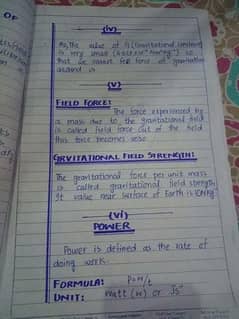 (iv)
As, The value of G (Gravitational constant)
is very small (6.67×10⁻¹¹Nm²kg⁻²) so
that we cannot feel force of gravitation
around us
(v)
FIELD FORCE:
The force experienced by
a mass due to the gravitational field
is called field force out of the field
this force becomes zero
GRVITATIONAL FIELD STRENGTH:
The gravitational force per unit mass
is called gravitational field strength
It value near surface of Earth is 10Nkg⁻¹
(vi)
POWER
Power is defined as the rate of
doing work.
FORMULA: P=W/t
UNIT: Watt (W) or Js⁻¹